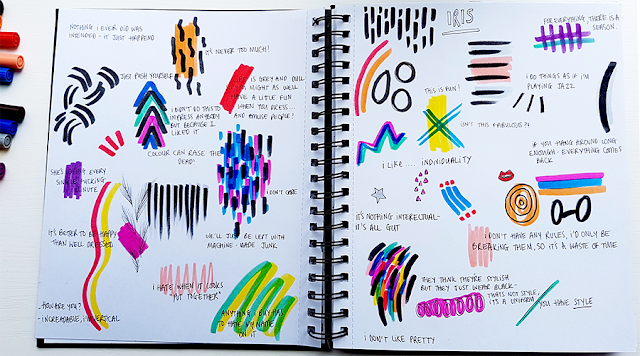 NOTHING I EVER DID WAS
INTENDED - IT JUST HAPPEND
IT'S NEVER TOO MUCH!
JUST PUSH YOURSELF
LIFE IS GREY AND DULL
YOU MIGHT AS WELL
HAVE A LITTLE FUN
WHEN YOU DRESS...
AND AMUSE PEOPLE!
I DON'T DO THIS TO
IMPRESS ANYBODY
BUT BECAUSE I
LIKED IT
COLOUR CAN RAISE THE
DEAD!
SHE'S LOVING EVERY
SINGLE FUCKING
MINUTE
I DON'T CARE
IT'S BETTER TO BE HAPPY
THAN WELL DRESSED
WE'LL JUST BE LEFT WITH
MACHINE - MADE JUNK
I HATE WHEN IT LOOKS
"PUT TOGETHER"
- HOW ARE YOU?
- INCREADABLE,
ANYTHING I BUY HAS
TO HAVE MY NAME
ON IT
IRIS
FOR EVERYTHING, THERE IS A
SEASON.
I DO THINGS AS IF I'M
PLAYING JAZZ
THIS IS FUN!
ISN'T THIS FABULOUS?!
IF YOU HANG AROUND LONG
ENOUGH - EVERYTHING COMES
BACK
I LIKE.... INDIVIDUALITY
IT'S NOTHING INTERECTUAL-
IT'S ALL GUT
I DON'T HAVE ANY RULES, I'D ONLY BE
BREAKING THEM, SO IT'S A WASTE OF TIME
THEY THINK THEY'RE STYLISH
BUT THEY JUST WEAR BLACK-
THATS NOT STYLE,
IT'S A UNIFORM
YOU HAVE STYLE
I DON'T LIKE PRETTY